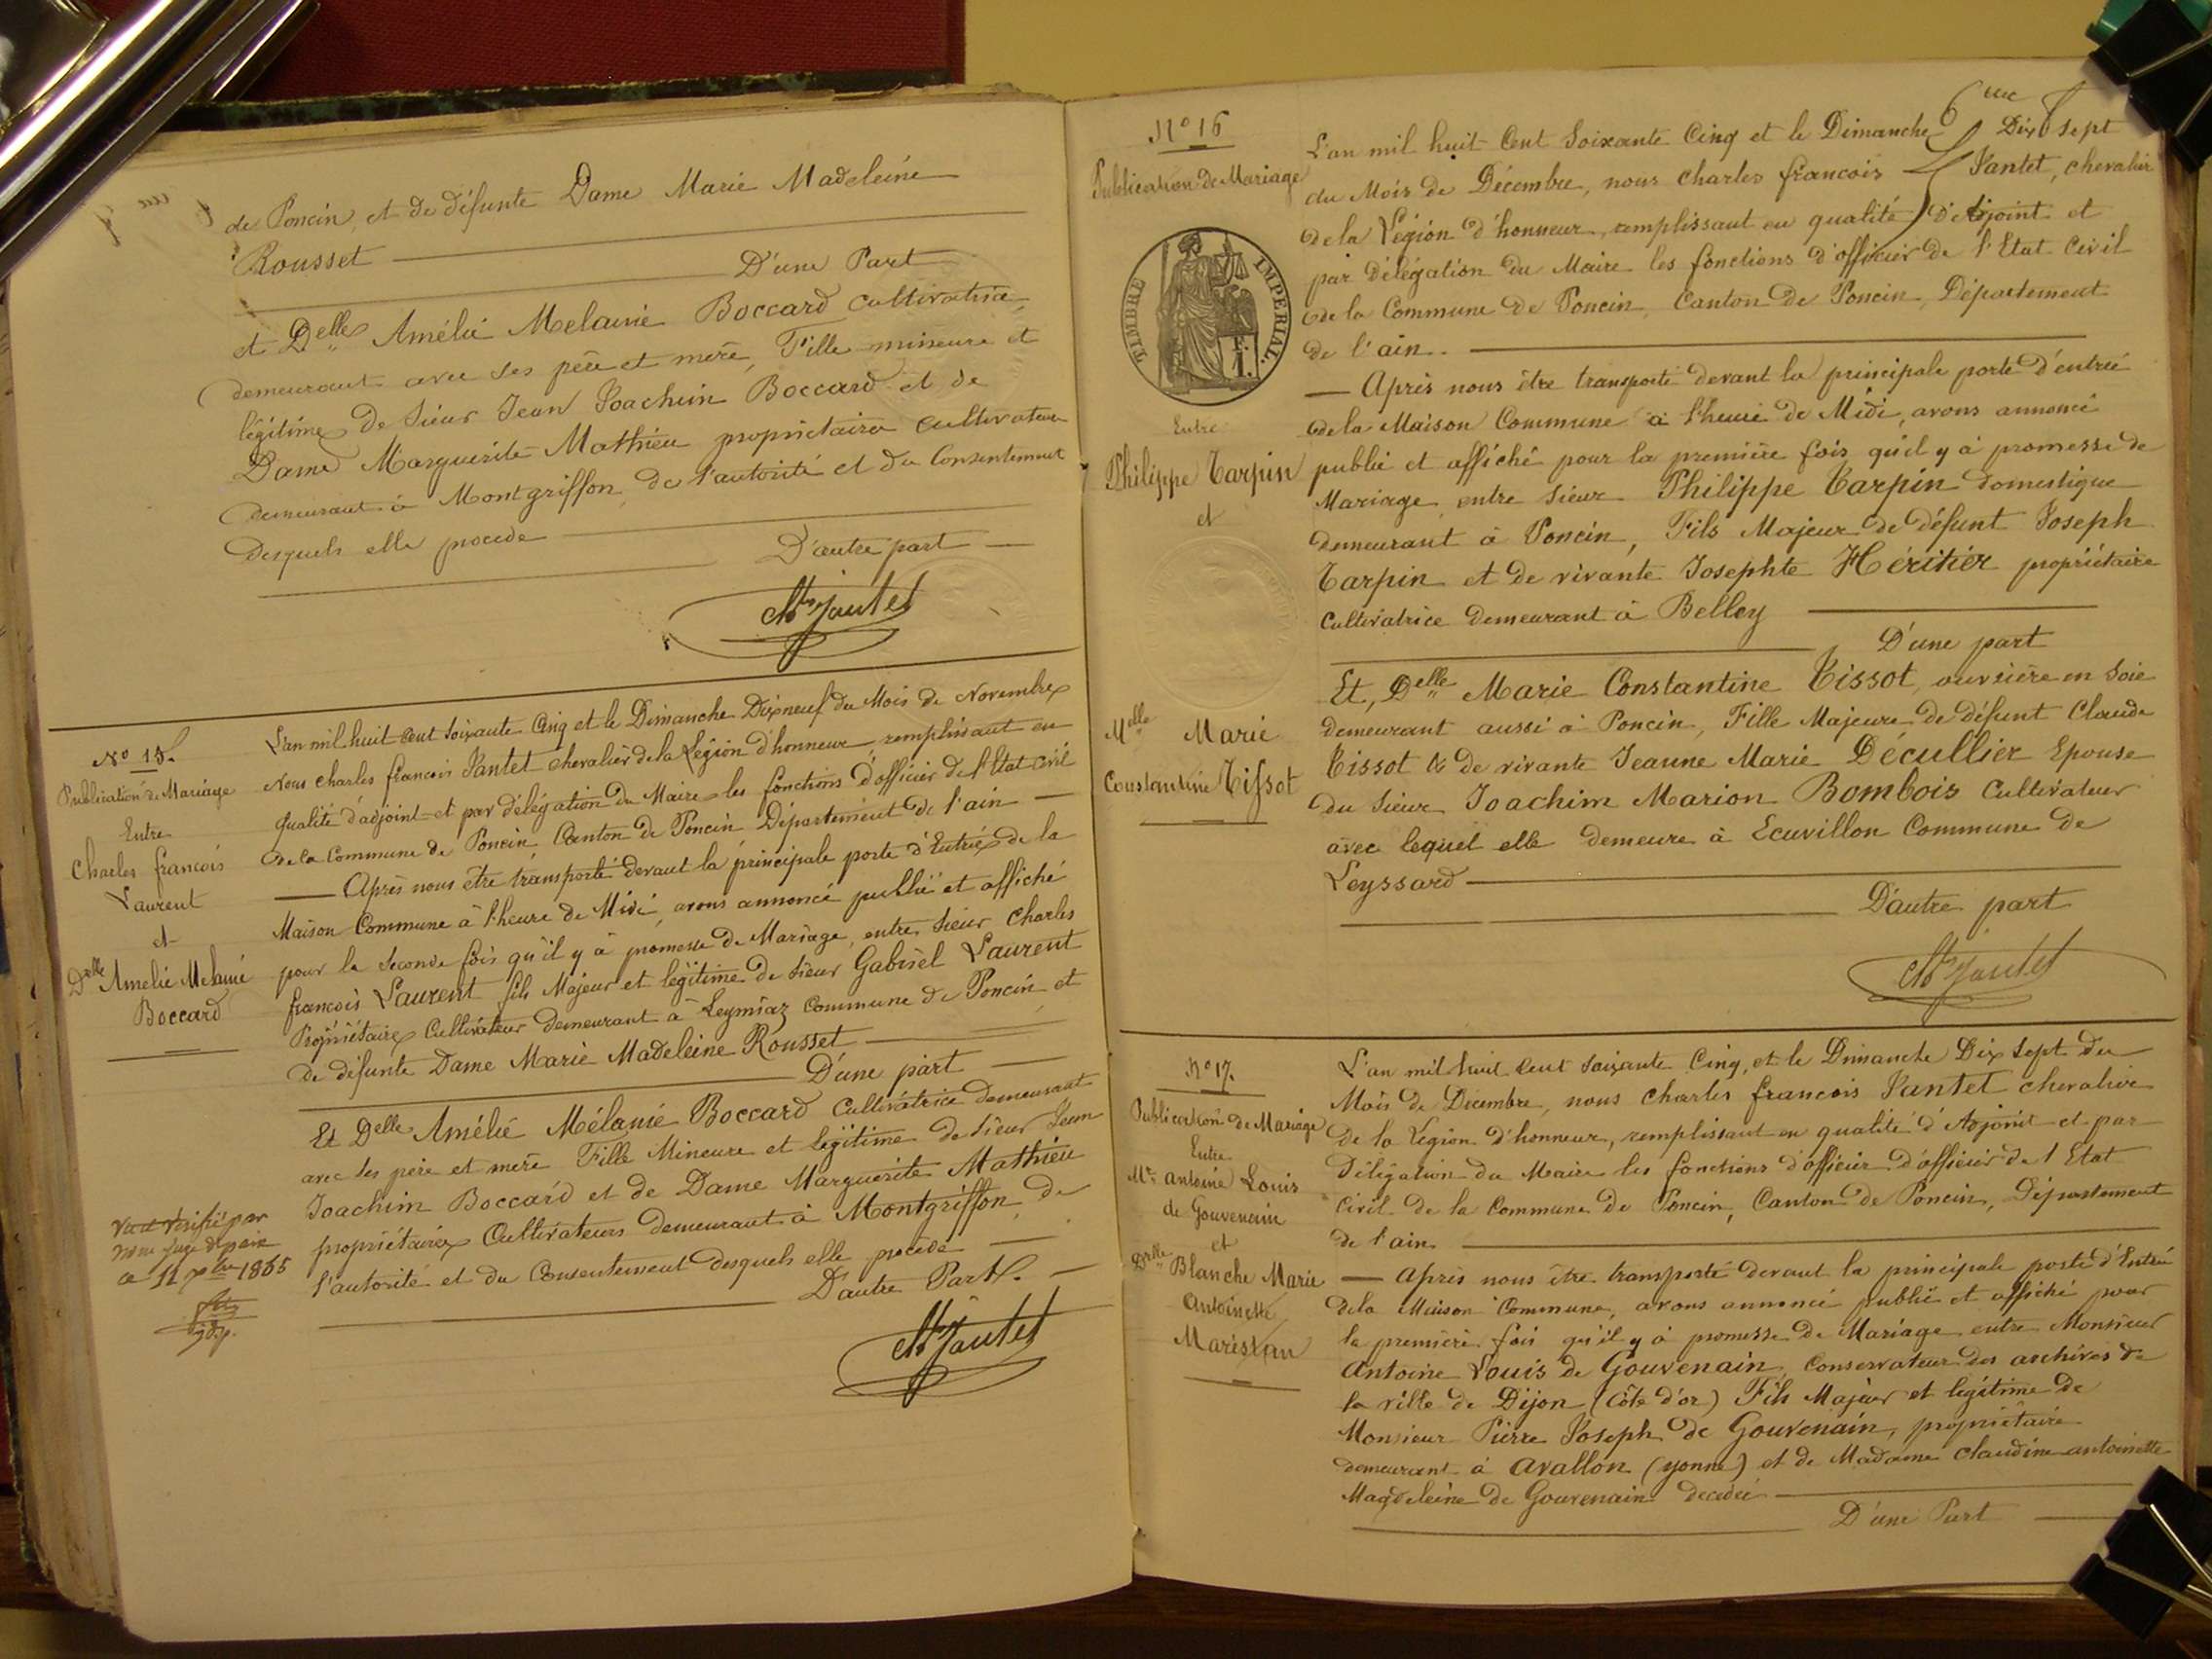 de Poncin, et de défunte Dame Marie Madeleine
Rousset
D'une Part
et Delle Amélie Melanie Boccard cultivatrice,
demeurant avec ses père et mère, Fille mineure et
légitime de Sieur Jean Joachim Boccard et de
Dame Marguerite Mathieu propriétaires cultivateurs
demeurant à Montgriffon, de l'autorité et du Consentement
desquels elle procède
D'autre part
Ch Jantet
No 15.
Publication de Mariage
Entre
Charles françois
Laurent
et
Delle Amélie Melanie
Boccard
L'an mil huit cent soixante Cinq et le Dimanche Dix neuf du Mois de Novembre
Nous charles françois Jantet chevalier de la Légion d'honneur, remplissant en
qualité d'adjoint et par délégation du Maire les fonctions d'officier de l'Etat civil
de la Commune de Poncin Canton de Poncin Département de l'ain
Après nous être transporté devant la principale porte d'Entrée de la
Maison Commune à l'heure de Midi, avons annoncé publié et affiché
pour la seconde fois qu'il y a promesse de Mariage, entre sieur Charles
françois Laurent fils Majeur et légitime de sieur Gabriel Laurent
Propriétaire Cultivateur demeurant à Leymiaz Commune de Poncin et
de défunte Dame Marie Madeleine Rousset
D'une part
Et Delle Amélie Mélanie Boccard Cultivatrice demeurant
avec ses père et mère Fille Mineure et légitime de sieur Jean
Joachim Boccard et de Dame Marguerite Mathieu
propriétaires Cultivateurs demeurant à Montgriffon, de
l'autorité et du Consentement desquels elle procède
D'autre Part.
Ch Jantet
Vu et Vérifié par
nous Juge de paix
ce 11 xbre 1865
6me
No 16
Publication de Mariage
TIMBRE IMPERIAL.
Entre
Philippe Tarpin
et
Melle Marie
Constantine Tissot
L'an mil huit Cent Soixante Cinq et le Dimanche Dix sept
du Mois de Décembre, nous charles françois Jantet, chevalier
de la Légion d'honneur, remplissant en qualité d'Adjoint et
par délégation du Maire les fonctions d'officier de l'Etat Civil
de la Commune de Poncin, Canton de Poncin, Département
de l'ain.
Après nous être transporté devant la principale porte d'entrée
de la Maison Commune à l'heure de Midi, avons annoncé
publié et affiché pour la première fois qu'il y a promesse de
Mariage, entre sieur Philippe Tarpin domestique
demeurant à Poncin, Fils Majeur de défunt Joseph
Tarpin et de vivante Josephte Héritier propriétaire
cultivatrice demeurant à Belley
D'une part
Et, Delle Marie Constantine Tissot, ouvrière en soie
demeurant aussi à Poncin, Fille Majeure de défunt Claude
Tissot & de vivante Jeanne Marie Décullier Epouse
du sieur Joachim Marion Bombois Cultivateur
avec lequel elle demeure à Ecuvillon Commune de
Leyssard
D'autre part
Ch Jantet
No 17.
Publication de Mariage
Entre
Mr antoine Louis
de Gouvenain
et
Delle Blanche Marie
Antoinette
Maristan
L'an mil huit cent soixante Cinq, et le Dimanche Dix sept du
Mois de Décembre, nous charles françois Jantet chevalier
de la Légion d'honneur, remplissant en qualité d'Adjoint et par
Délégation du Maire les fonctions d'officier d'officier de l'Etat
Civil de la Commune de Poncin, Canton de Poncin, Département
de l'ain
Après nous être transporté devant la principale porte d'Entrée
de la Maison Commune, avons annoncé publié et affiché pour
la première fois qu'il y a promesse de Mariage entre Monsieur
Antoine Louis de Gouvenain, Conservateur des archives de
la ville de Dijon (Côte d'or) Fils Majeur et légitime de
Monsieur Pierre Joseph de Gouvenain, propriétaire
demeurant à avallon (yonne) et de Madame claudine antoinette
Magdeleine de Gouvenain décédée
D'une Part